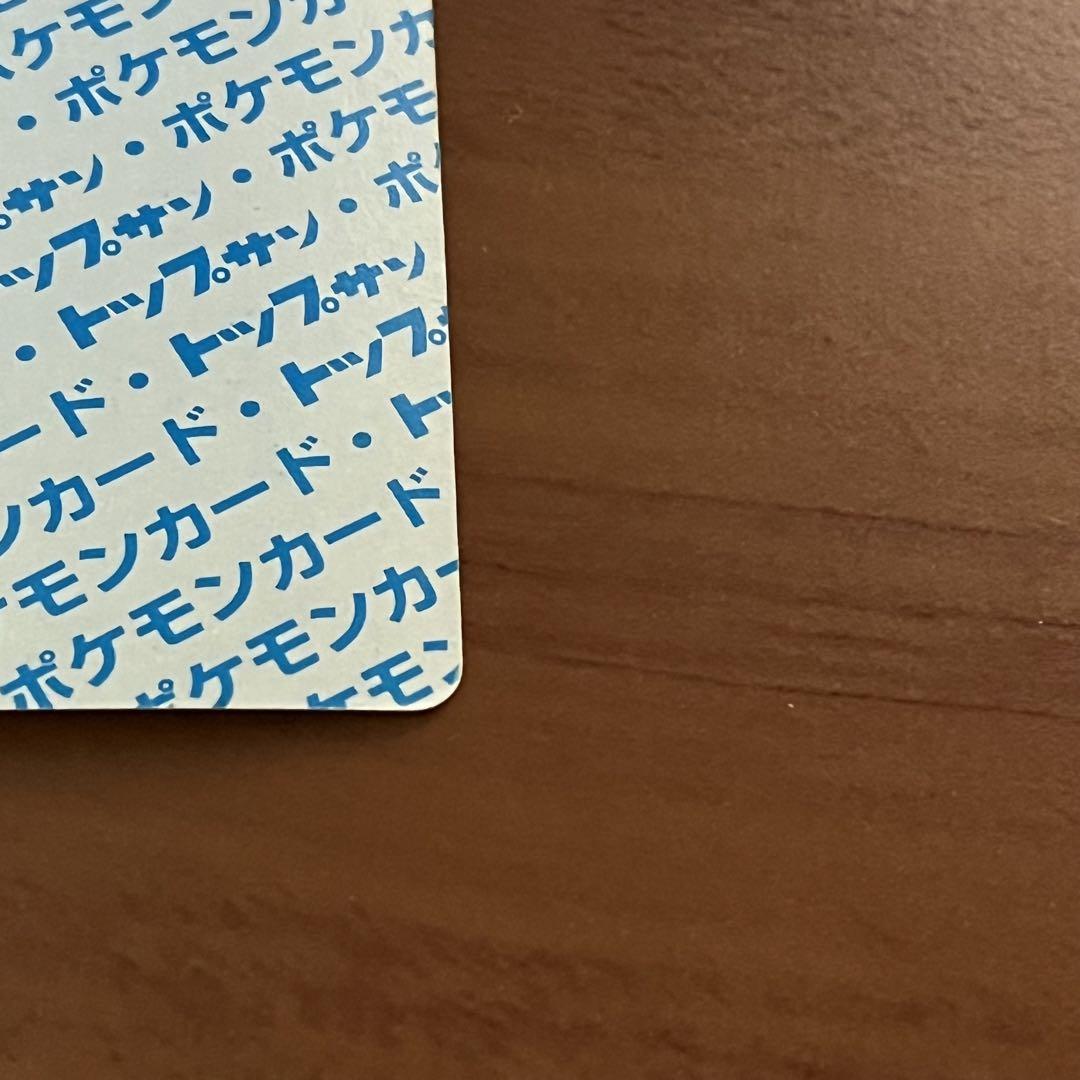 ケモン
・ポケモンカ
プサン・ポケモンカ
ップサン・ポケモ
・トップサン・ポ
ード・トップサン
ンカード・トップ
モンカード・ト
ポケモンカード
ポケモンカー
ケモン